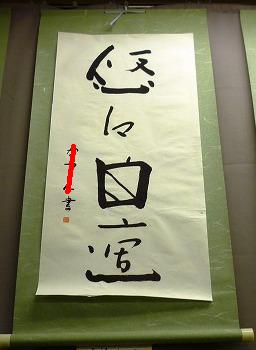 悠々自適
書